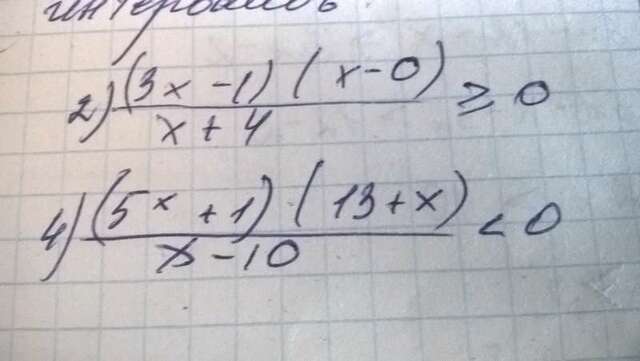 интервалов
2) (3x - 1) (x - 0) / x + 4 ≥ 0
4) (5x + 1) (13 + x) / x - 10 < 0